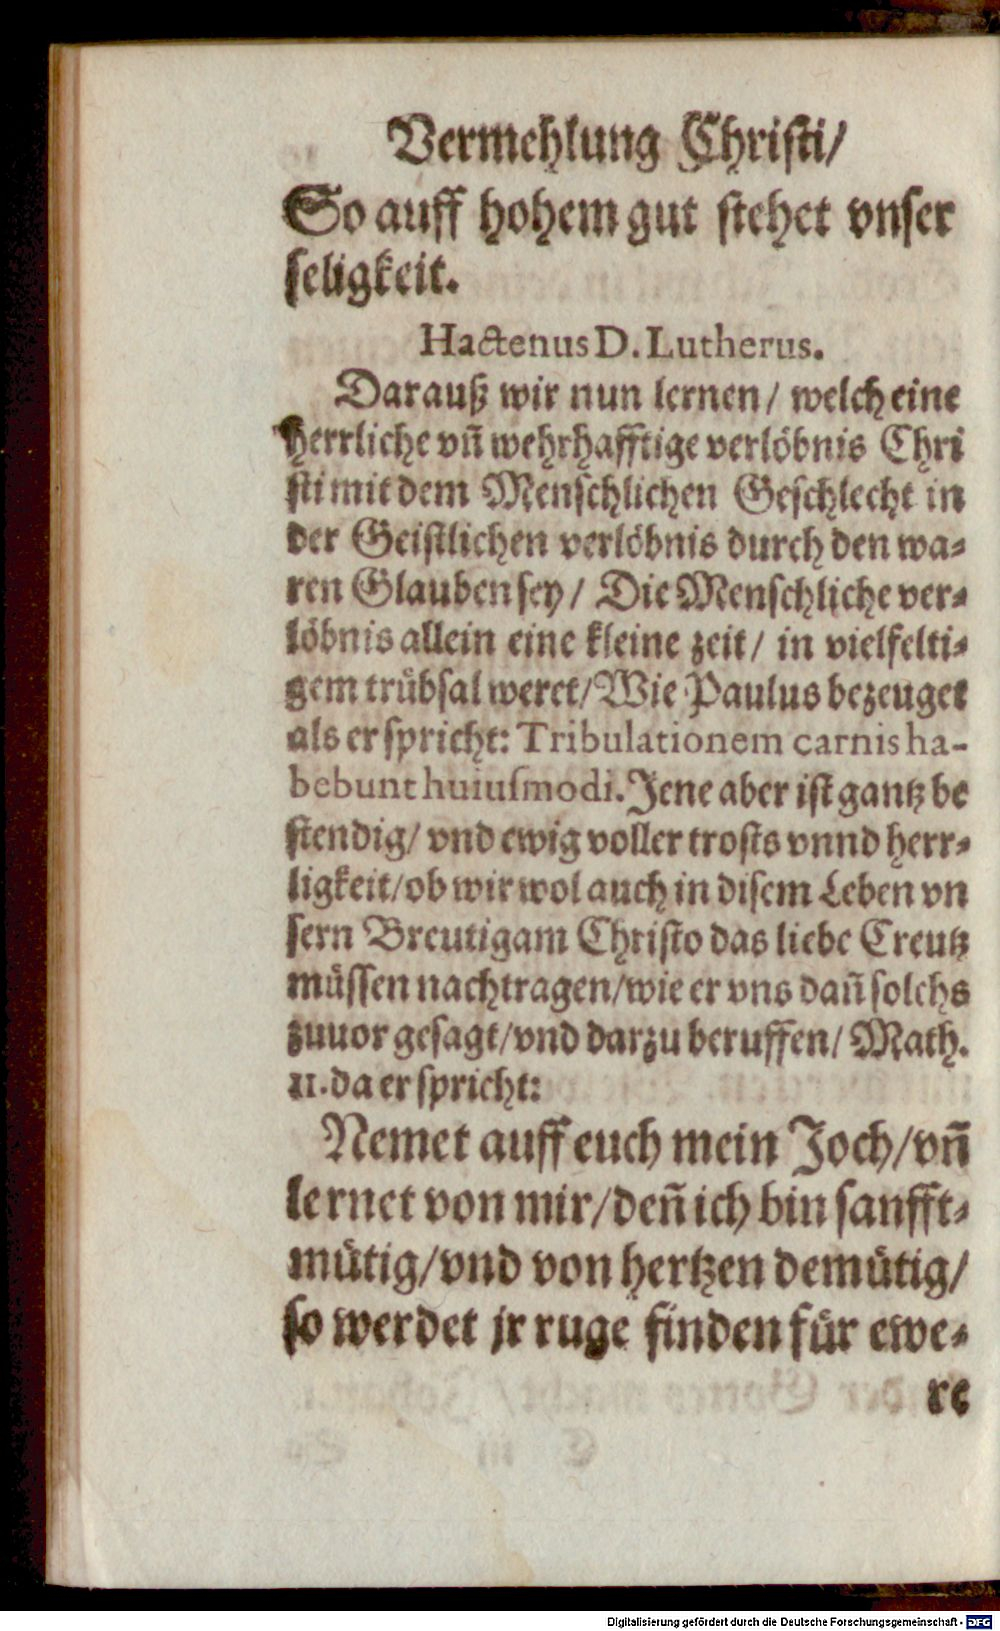 Vermehlung Christi/
So auff hohem gut stehet vnser
seligkeit.
Hactenus D. Lutherus.
Darauß wir nun lernen/ welch eine
herrliche vn̄ wehrhafftige verlöbnis Chri
sti mit dem Menschlichen Geschlecht in
der Geistlichen verlöbnis durch den wa-
ren Glauben sey/ Die Menschliche ver-
löbnis allein eine kleine zeit/ in vielfelti-
gem trübsal weret/ Wie Paulus bezeuget
als er spricht: Tribulationem carnis ha-
bebunt huiusmodi. Jene aber ist gantz be
stendig/ vnd ewig voller trosts vnnd herr-
ligkeit/ ob wir wol auch in disem Leben vn
sern Breutigam Christo das liebe Creutz
müssen nachtragen/ wie er vns dan̄ solchs
zuuor gesagt/ vnd darzu beruffen/ Math.
11. da er spricht:
Nemet auff euch mein Joch/ vn̄
lernet von mir/ den̄ ich bin sanfft-
mütig/ vnd von hertzen demütig/
so werdet jr ruge finden für ewe-
re
Digitalisierung gefördert durch die Deutsche Forschungsgemeinschaft - DFG